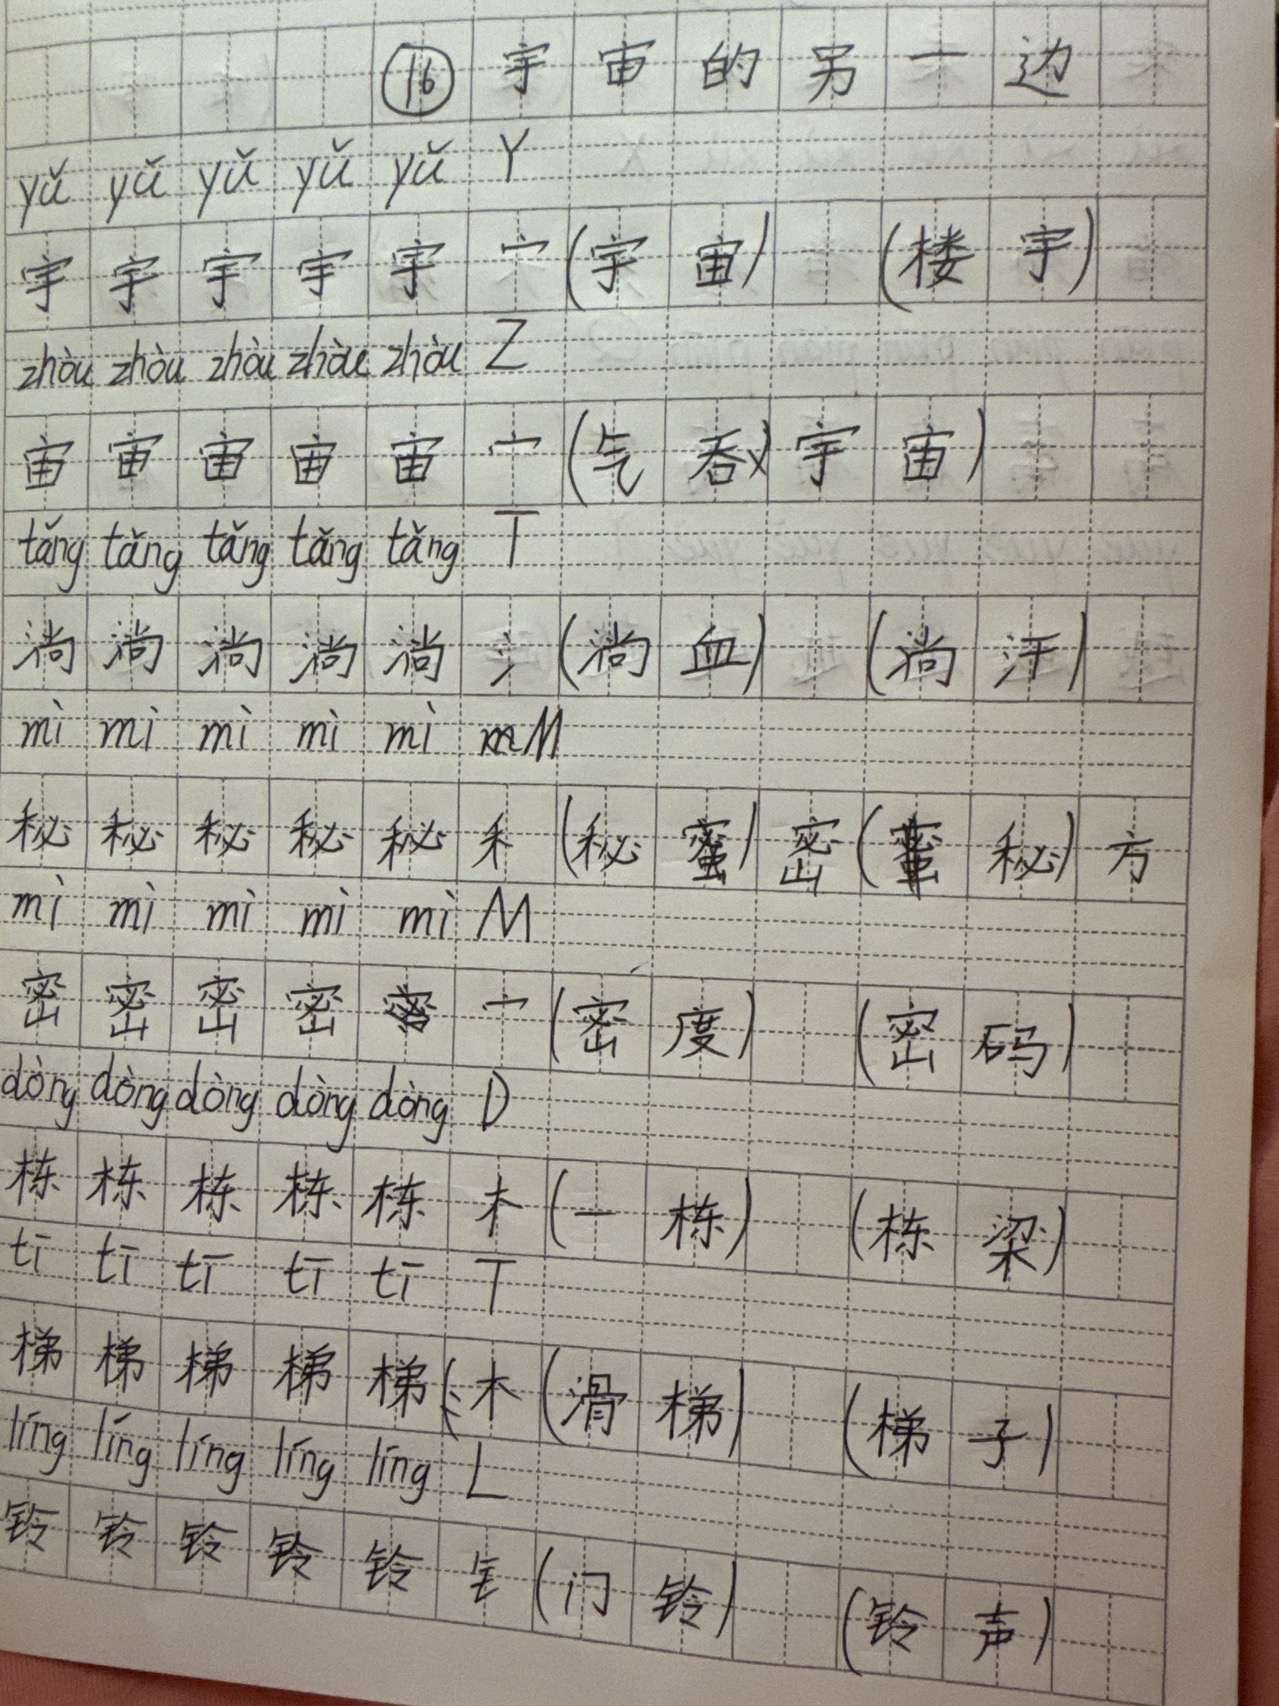 ⑯ 宇宙的另一边
yǔ yǔ yǔ yǔ yǔ Y
宇 宇 宇 宇 宇 宀 (宇宙) (楼宇)
zhòu zhòu zhòu zhòu zhòu Z
宙 宙 宙 宙 宙 宀 (气吞宇宙)
tǎng tǎng tǎng tǎng tǎng T
淌 淌 淌 淌 淌 氵 (淌血) (淌汗)
mì mì mì mì mì M
秘 秘 秘 秘 秘 禾 (秘蜜) 密 (秘) 方
mì mì mì mì mì M
密 密 密 密 密 宀 (密度) (密码)
dòng dòng dòng dòng dòng D
栋 栋 栋 栋 栋 木 (一栋) (栋梁)
tī tī tī tī tī T
梯 梯 梯 梯 梯 木 (滑梯) (梯子)
líng líng líng líng líng L
铃 铃 铃 铃 铃 钅 (门铃) (铃声)